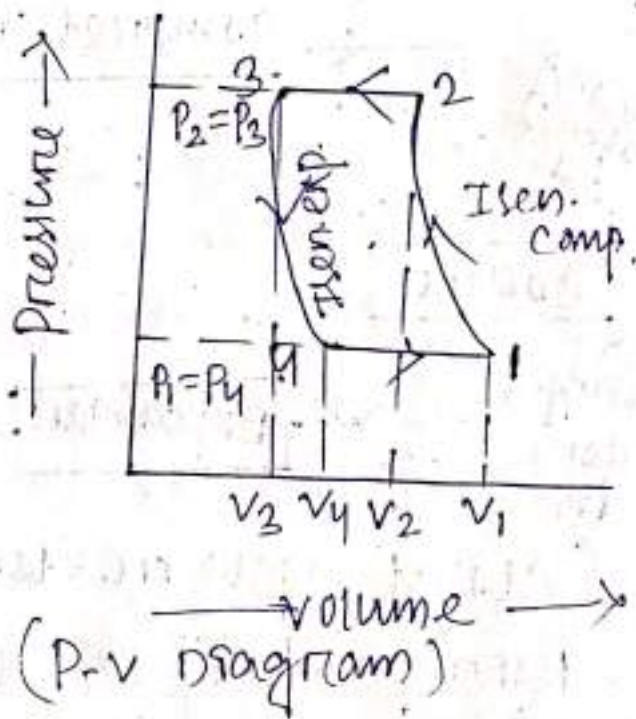 Pressure
3. 2
P2=P3
Isen.exp.
Isen.
comp.
P1=P4
4 1
V3 V4 V2 V1
volume
(P-V Diagram)